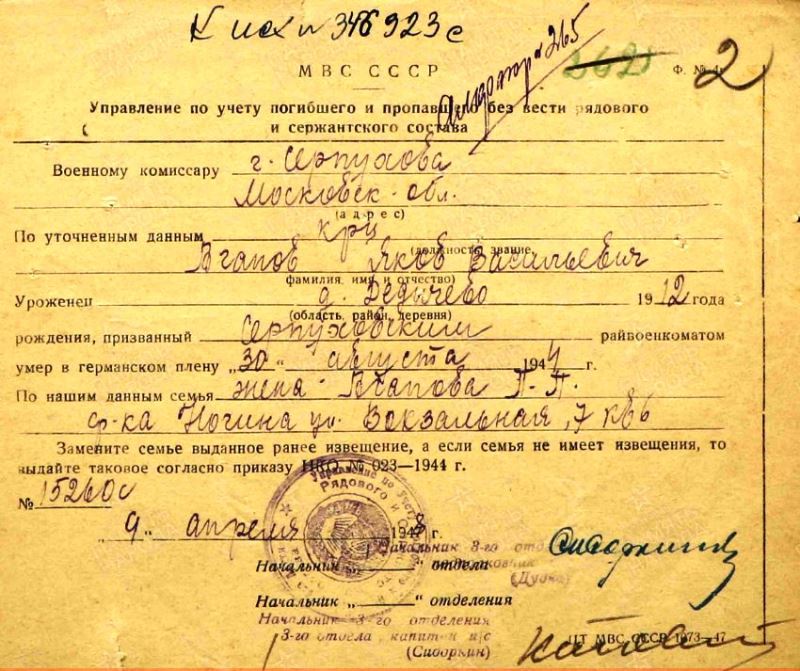 К исх н 346923с
№ 265
2625
МВС СССР
Ф. № 4
2
Управление по учету погибшего и пропавшего без вести рядового
и сержантского состава
Военному комиссару г. Серпухова
Московск. обл.
(адрес)
По уточненным данным крц
(должность звание,
Агапов Яков Васильевич
фамилия, имя и отчество)
Уроженец д. Дедичево 1912 года
(область, район, деревня)
рождения, призванный Серпуховским райвоенкоматом
умер в германском плену „30“ августа 1944 г.
По нашим данным семья жена - Агапова П. П.
ф-ка Ногина ул. Вокзальная, 7 кв 6
Замените семье выданное ранее извещение, а если семья не имеет извещения, то
выдайте таковое согласно приказу НКО № 023—1944 г.
№ 15260с
„9“ апреля 1948 г.
Начальник 3-го отд
Начальник „ “ отдела
Начальник „ “ отделения
Начальник 3 го отделения
3-го отдела капитан и/с
(Сиворкин)
ЦТ МВС СССР 1073—47